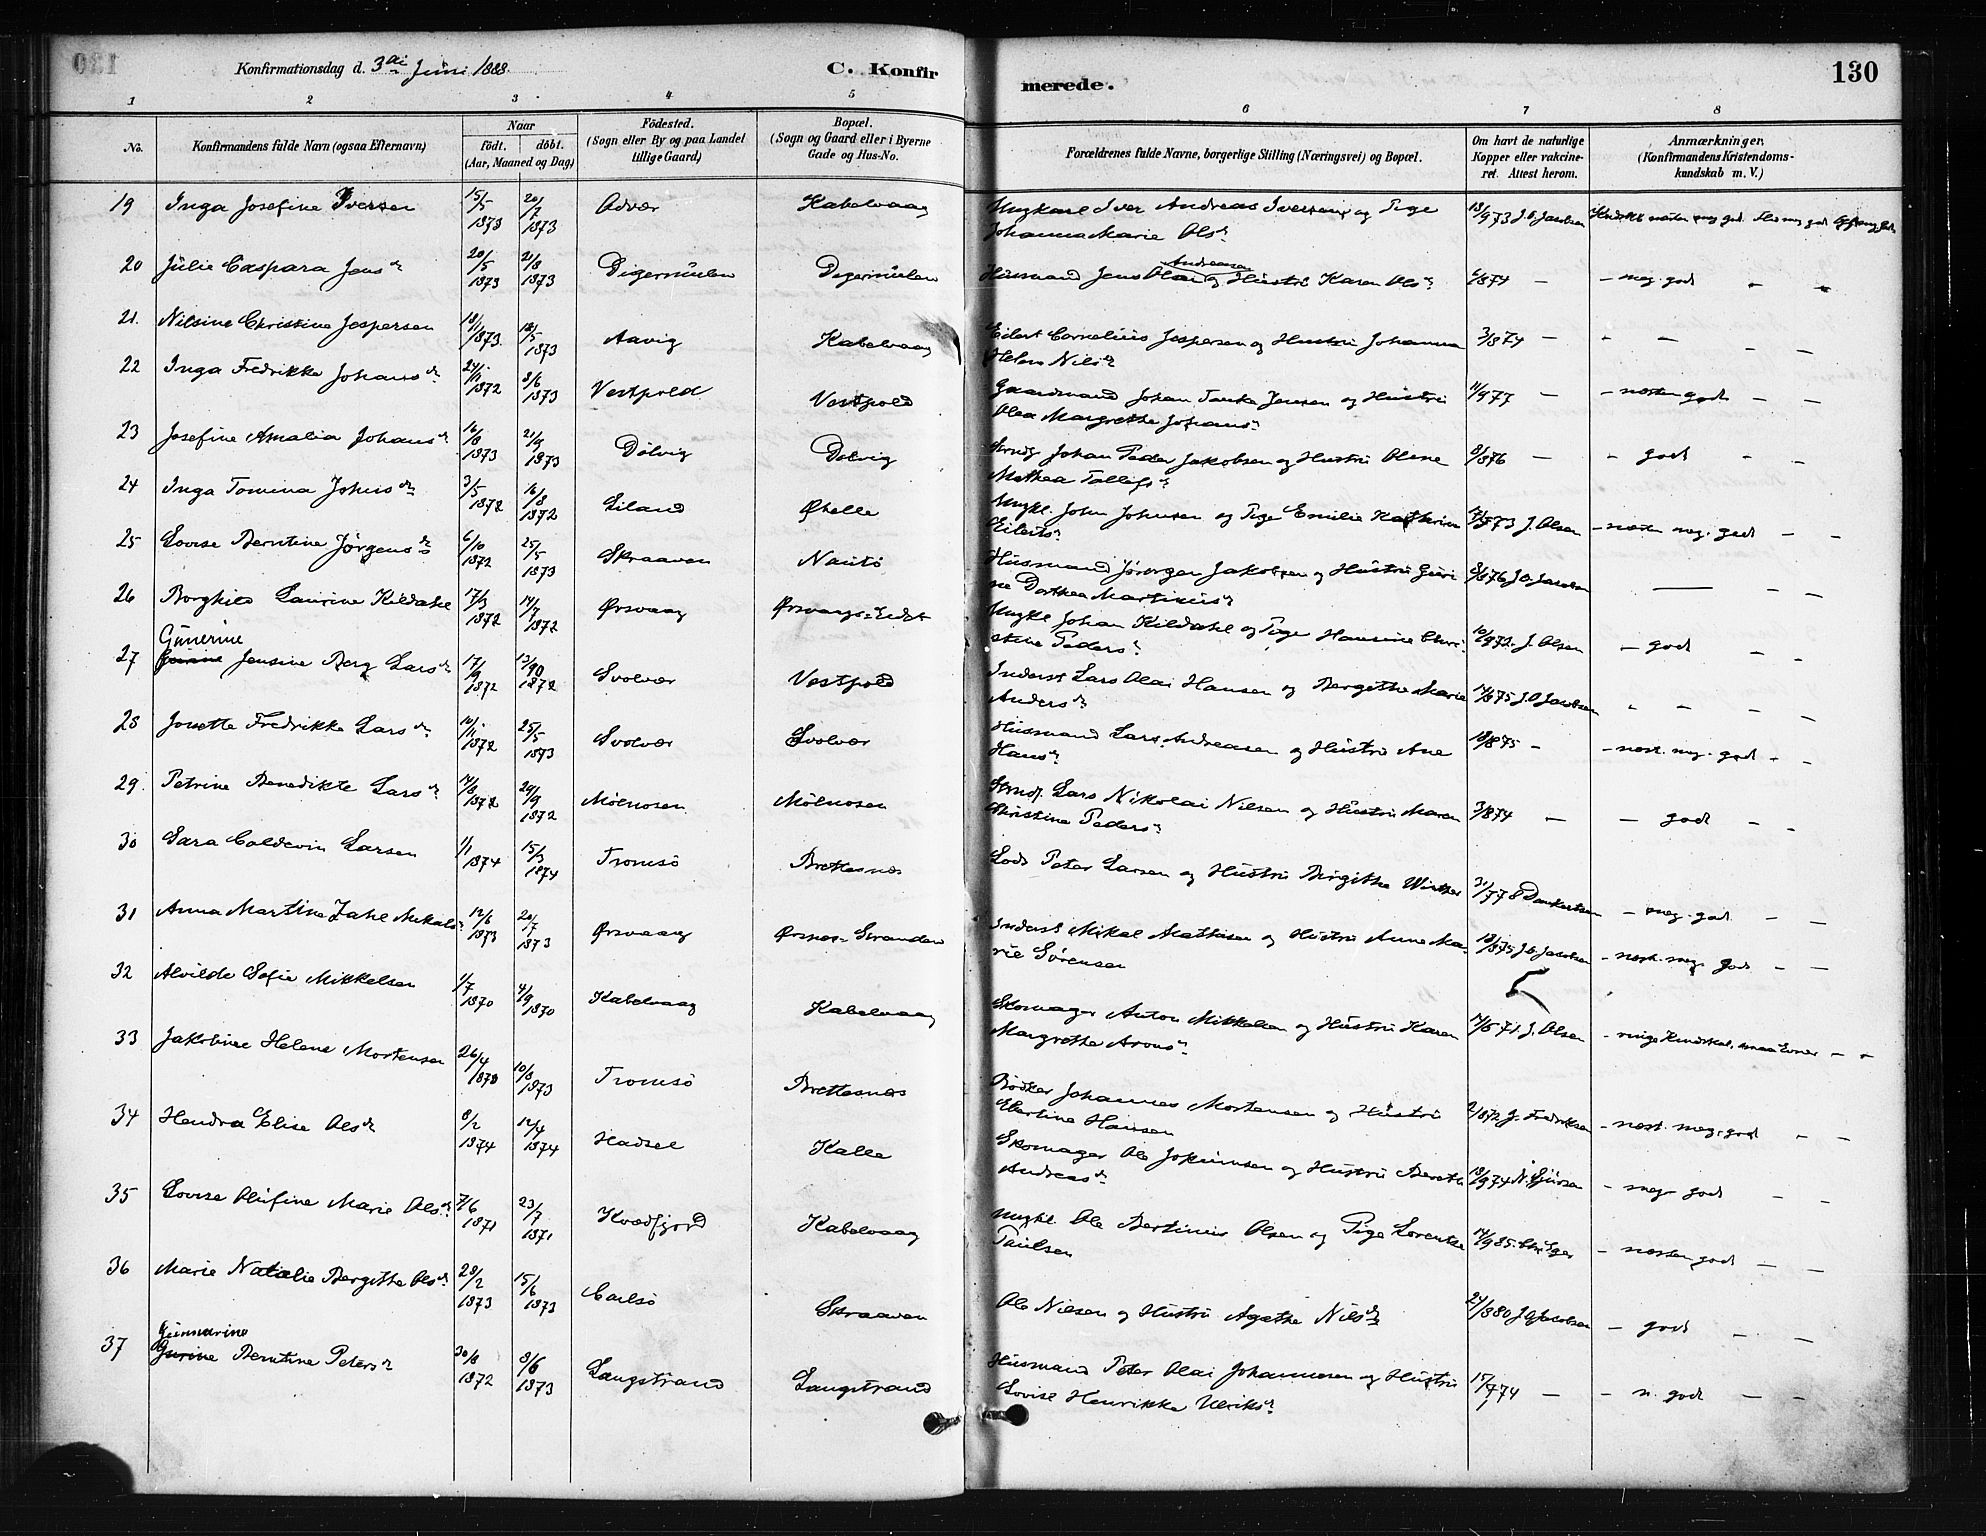 Konfirmationsdag d. 3die Juni 1888.
C. Konfir
merede.
130
1 2 3 4 5 6 7 8
No. Konfirmandens fulde Navn (ogsaa Efternavn)
Naar
Födt. döbt.
(Aar, Maaned og Dag)
Födested.
(Sogn eller By og paa Landet
tillige Gaard)
Bopæl.
(Sogn og Gaard eller i Byerne
Gade og Hus-No.
Forældrenes fulde Navne, borgerlige Stilling (Næringsvei) og Bopæl.
Om havt de naturlige
Kopper eller vakcine-
ret. Attest herom.
Anmærkninger.
(Konfirmandens Kristendoms-
kundskab m. V.)
19 Inga Josefine Iversen 15/5 1873 20/7 1873 Kabelvaag Ungkarl Iver Andreas Iversen og Pige
Johanna Marie Olsdr 18/9 73 J. O. Jacobsen
20 Julie Caspara Jensdr 20/5 1873 21/8 1873 Digermulen Digermulen Husmand Jens Olai Andreasen og Hustru Karen Olsdr 6/8 74 — - meg. god
21. Nilsine Christine Jespersen 18/1 1873 18/5 1873 Aavig Kabelvaag Eilert Cornelius Jespersen og Hustru Johanna
Helene Nilsdr 3/8 74 —
22 Inga Fredrikke Johansdr 24/11 1872 8/6 1873 Vestpold Vestpold Gaardmand Johan Jensen og Hustru
Olea Margrethe Johansdr 11/9 77 — - næsten god
23 Josefine Amalia Johansdr 16/8 1873 21/9 1873 Dölvig Dölvig Johan Peder Jakobsen og Hustru Olene
Mathea Tollefsdr 8/8 76 — - god
24 Inga Tomina Johnsdr 3/5 1872 16/8 1872 Eiland Ungkl. John Johnsen og Pige Emilie Kathrine
Eilertsdr J. Olsen - næsten meg. god
25 Lovise Berntine Jörgensdr 6/10 1872 25/5 1873 Skraaven Nautö Husmand Jörgen Jakobsen og Hustru Guri
ne Dorthea Martinusdr 8/8 76 J. O. Jacobsen
26 Borghild Laurine Kildahl 17/3 1872 14/7 1872 Ørsvaag Ungkl Johan Kildahl og Pige Hansine Chri
stine Pedersdr J. Olsen - god
27 Gunerine Jensine Berg Larsdr 17/9 1872 13/10 1872 Svolvær Vestpold Inderst Lars Olai Hansen og Bergitte Marie
Andersdr J. O. Jacobsen
28 Jonette Fredrikke Larsdr 10/11 1872 25/5 1873 Svolvær Svolvær Husmand Lars Andreasen og Hustru Ane
Hansdr 18/8 75 — - næst. meg. god
29. Petrine Benedikte Larsdr 14/8 1872 29/9 1872 Mölnosen Mölnosen Lars Nikolai Nilsen og Hustru Maren
Christine Pedersdr 3/8 74 — - god
30 Sara Coldevin Larsen 1/1 1874 15/3 1874 Tromsö Brettesnæs Lods Peter Larsen og Hustru Birgitte Winther 31/7 78 Dankertsen - meg. god
31 Anna Martine Zahl Mikalsdr 12/6 1873 20/7 1873 Ørsvaag Ørsnæs-Stranden Inderst Mikal Mathisen og Hustru Anne Ma
rie Sörensen J. O. Jacobsen - næst. meg. god
32 Alvilde Sofie Mikkelsen 1/7 1870 4/9 1870 Kabelvaag Kabelvaag Skomager Anton Mikkelsen og Hustru Karen
Margrethe Aronsdr J. Olsen - ringe Kundskab, smaa Evner
33 Jakobine Helene Mortensen 26/4 1873 10/8 1873 Tromsö Brettesnæs Bödker Johannes Mortensen og Hustru
Ebertine Hansen J. Fredriksen - næst. meg. god
34 Hendra Elise Olsdr 8/2 1874 12/4 1874 Hadsel Kalle Skomager Ole Jokumsen og Hustru Bereth
Andreasdr 18/9 74 - meg. god
35 Lovise Olufine Marie Olsdr 7/6 1871 23/7 1871 Kvædfjord Kabelvaag Ungkl. Ole Bertinius Olsen og Pige Lorentse
Paulsen - næsten god
36 Marie Natalie Bergitte Olsdr 28/2 1873 15/6 1873 Carlsö Skraaven Ole Nilsen og Hustru Agathe Nilsdr 24/8 80 J. O. Jacobsen - god
37 Gunnarine Berntine Petersdr 30/8 1872 8/6 1873 Langstrand Langstrand Husmand Peter Olai Johannesen og Hustru
Lovise Henrikke Ulriksdr 17/7 74 — - n. god